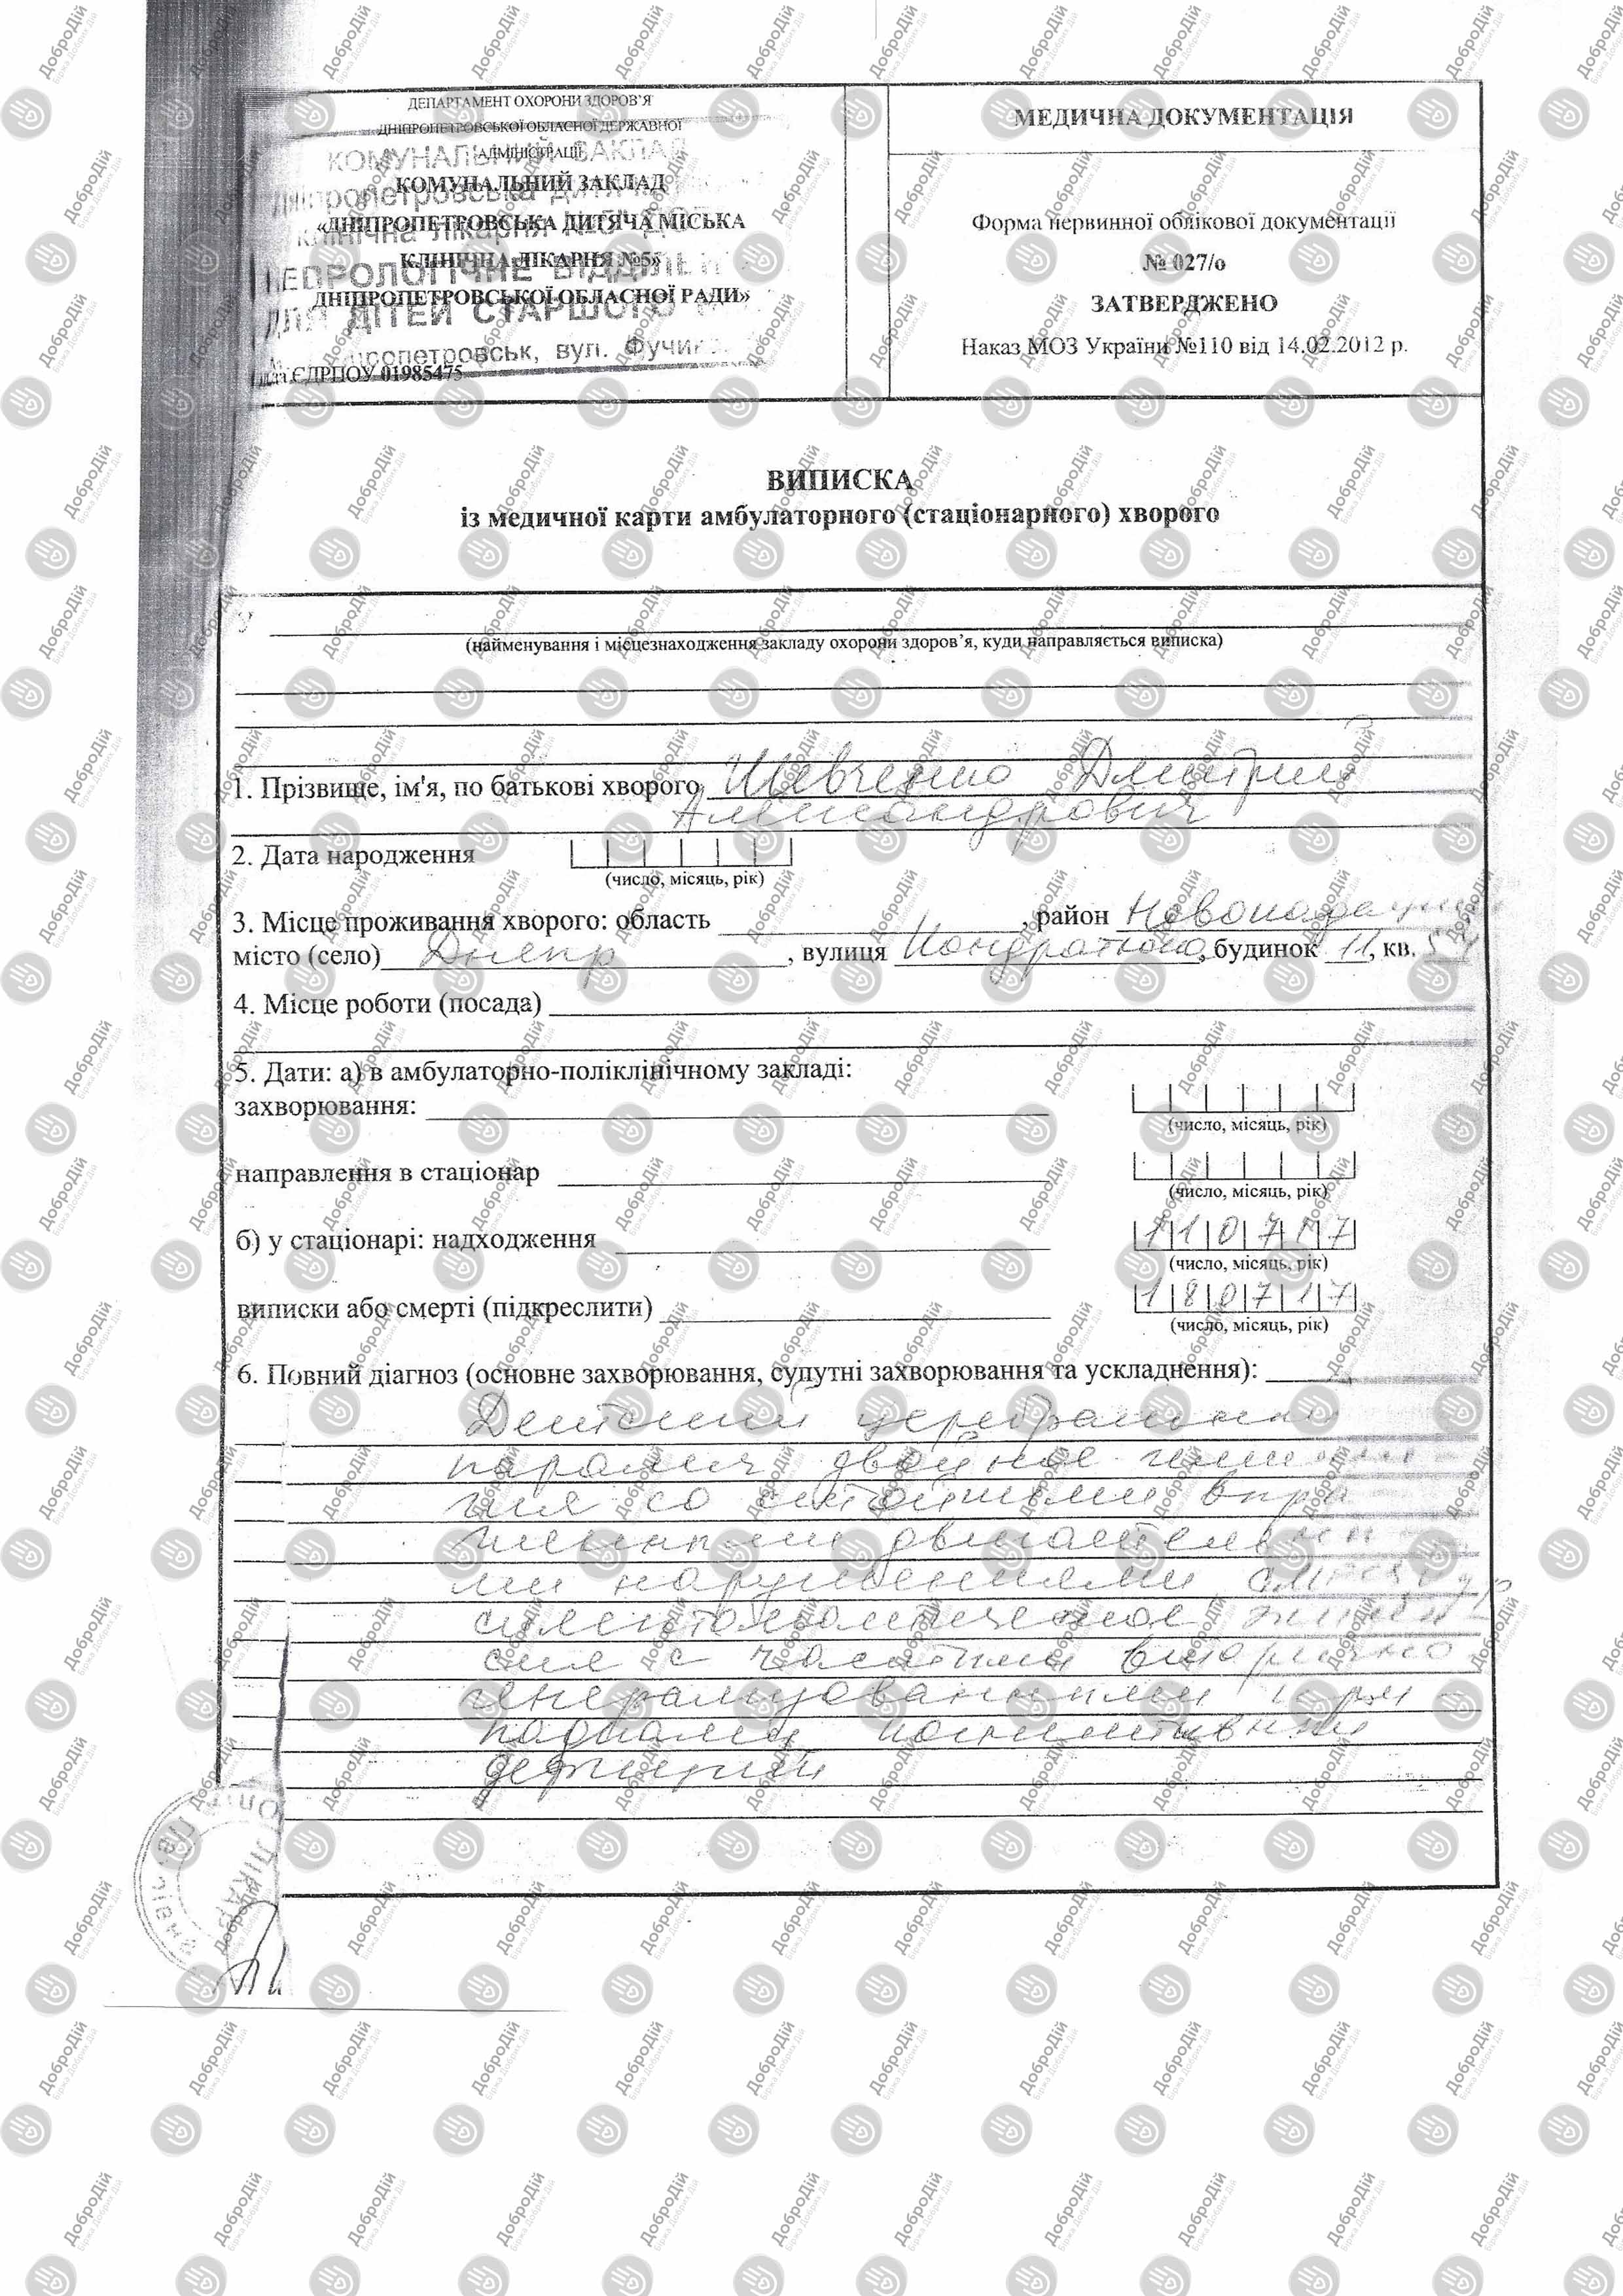 ДЕПАРТАМЕНТ ОХОРОНИ ЗДОРОВ'Я
ДНІПРОПЕТРОВСЬКОЇ ОБЛАСНОЇ ДЕРЖАВНОЇ
АДМІНІСТРАЦІЇ
КОМУНАЛЬНИЙ ЗАКЛАД
«ДНІПРОПЕТРОВСЬКА ДИТЯЧА МІСЬКА
КЛІНІЧНА ЛІКАРНЯ №5»
ДНІПРОПЕТРОВСЬКОЇ ОБЛАСНОЇ РАДИ»
ЄДРПОУ 01985475
КОМУНАЛЬНИЙ ЗАКЛАД
ДЛЯ ДІТЕЙ СТАРШОГО
вул.
МЕДИЧНА ДОКУМЕНТАЦІЯ
Форма первинної облікової документації
№ 027/о
ЗАТВЕРДЖЕНО
Наказ МОЗ України №110 від 14.02.2012 р.
ВИПИСКА
із медичної карти амбулаторного (стаціонарного) хворого
(найменування і місцезнаходження закладу охорони здоров'я, куди направляється виписка)
1. Прізвище, ім'я, по батькові хворого Шевченко Дмитрий
Александрович
2. Дата народження
(число, місяць, рік)
3. Місце проживання хворого: область , район
місто (село) Днепр , вулиця Кондратюка, будинок 11, кв.
4. Місце роботи (посада)
5. Дати: а) в амбулаторно-поліклінічному закладі:
захворювання:
(число, місяць, рік)
направлення в стаціонар
(число, місяць, рік)
б) у стаціонарі: надходження 110717
(число, місяць, рік)
виписки або смерті (підкреслити) 180717
(число, місяць, рік)
6. Повний діагноз (основне захворювання, супутні захворювання та ускладнення):
Детский церебральный
паралич двойное
гия со стойкими выра
женными двигательн
ми нарушениями
симптоматическое
сия с частыми вторично
генерализованными при
падками когнитивный
дефицит
ДоброДій
Біржа Добрих Дій